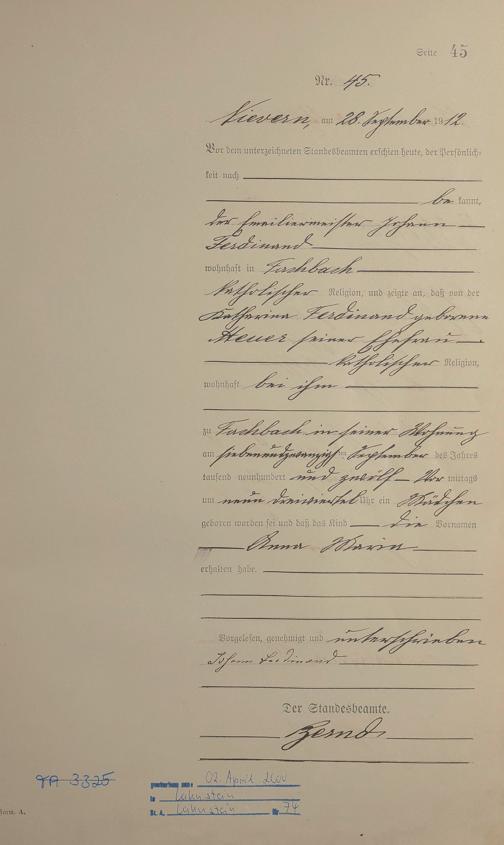 Seite 45
Nr. 45.
Nievern, am 28. September 1912.
Vor dem unterzeichneten Standesbeamten erschien heute, der Persönlich-
keit nach
be kannt,
der Emailliermeister Johann
Ferdinand
wohnhaft in Fachbach
katholischer Religion, und zeigte an, daß von der
Katharina Ferdinand geborene
Heuer seiner Ehefrau
katholischer Religion,
wohnhaft bei ihm
zu Fachbach in seiner Wohnung
am siebenundzwanzigsten September des Jahres
tausend neunhundert und zwölf Vor mittags
um neun dreiviertel Uhr ein Mädchen
geboren worden sei und daß das Kind die Vornamen
Anna Maria
erhalten habe.
Vorgelesen, genehmigt und unterschrieben
Johann Ferdinand
Der Standesbeamte.
TA 3325
gestorben am: 02. April 2000
in Lahnstein
St. A. Lahnstein Nr. 74
Form. A.